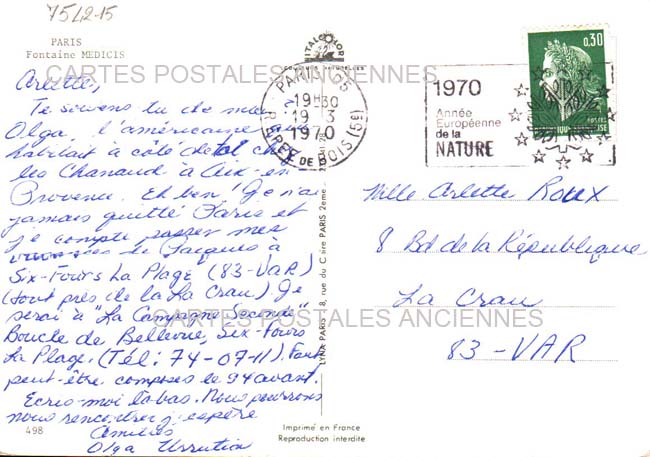 75/2-15
PARIS
Fontaine MEDICIS
CARTES POSTALES ANCIENNES
Arlette,
Te siviens tu de moi ?
Olga, l'américaine qui
habitait à côté de toi chez
les Chanaud à Aix-en-
Provence. Eh ben! Je n'ai
jamais quitté Paris et
je compte passer mes
vacances de Pâques à
Six-Fours La Plage (83-VAR)
(tout près de la La Crau) Je
serai à "La Campagne Seconde"
Boucle de Bellevue, Six-Fours
La Plage. (Tél: 74-07-11). Faut
peut-être composer le 94 avant.
Ecris-moi là bas. Nous pourrons
nous rencontrer j'espère
Amitiés
Olga
498
PARIS
19H30
19-3
1970
R. EPEE DE BOIS (5e)
1970
Année
Européenne
de la
NATURE
0,30
POSTES
Mlle Arlette Roux
8 Bd de la République
La Crau
83-VAR
CARTES POSTALES ANCIENNES
LYNA PARIS 8, rue du Caire PARIS 2ème
Imprimé en France
Reproduction interdite